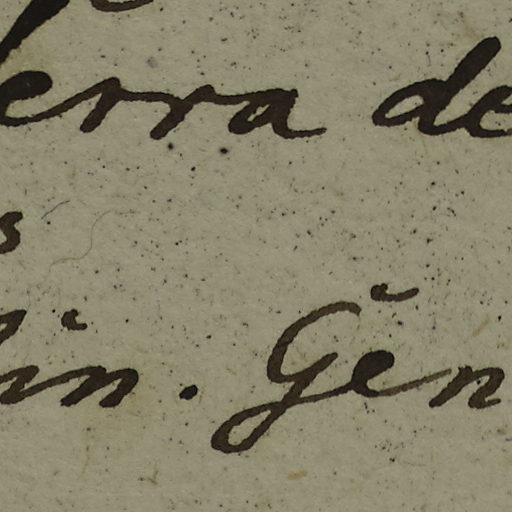 erra de
s
lin. Gĕn